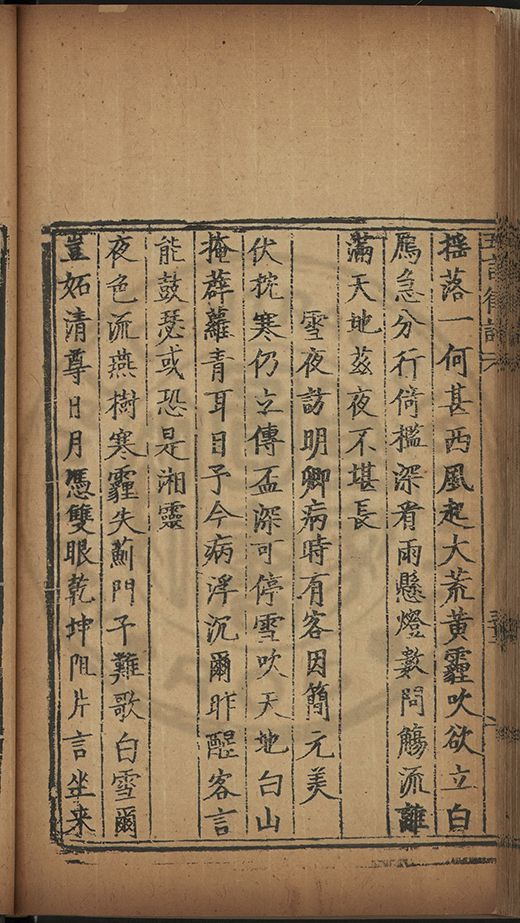 搖落一何甚西風起大荒黃霾吹欲立白
鴈急分行倚檻深看雨懸燈數問觴流離
滿天地茲夜不堪長
雪夜訪明卿病時有客因簡元美
伏枕寒仍立傳盃深可停雪吹天地白山
掩薜蘿青耳目予今病浮沉爾昨醒客言
能鼓瑟或恐是湘靈
夜色流燕樹寒霾失薊門予難歌白雪爾
豈妬清尊日月憑雙眼乾坤阻片言坐来